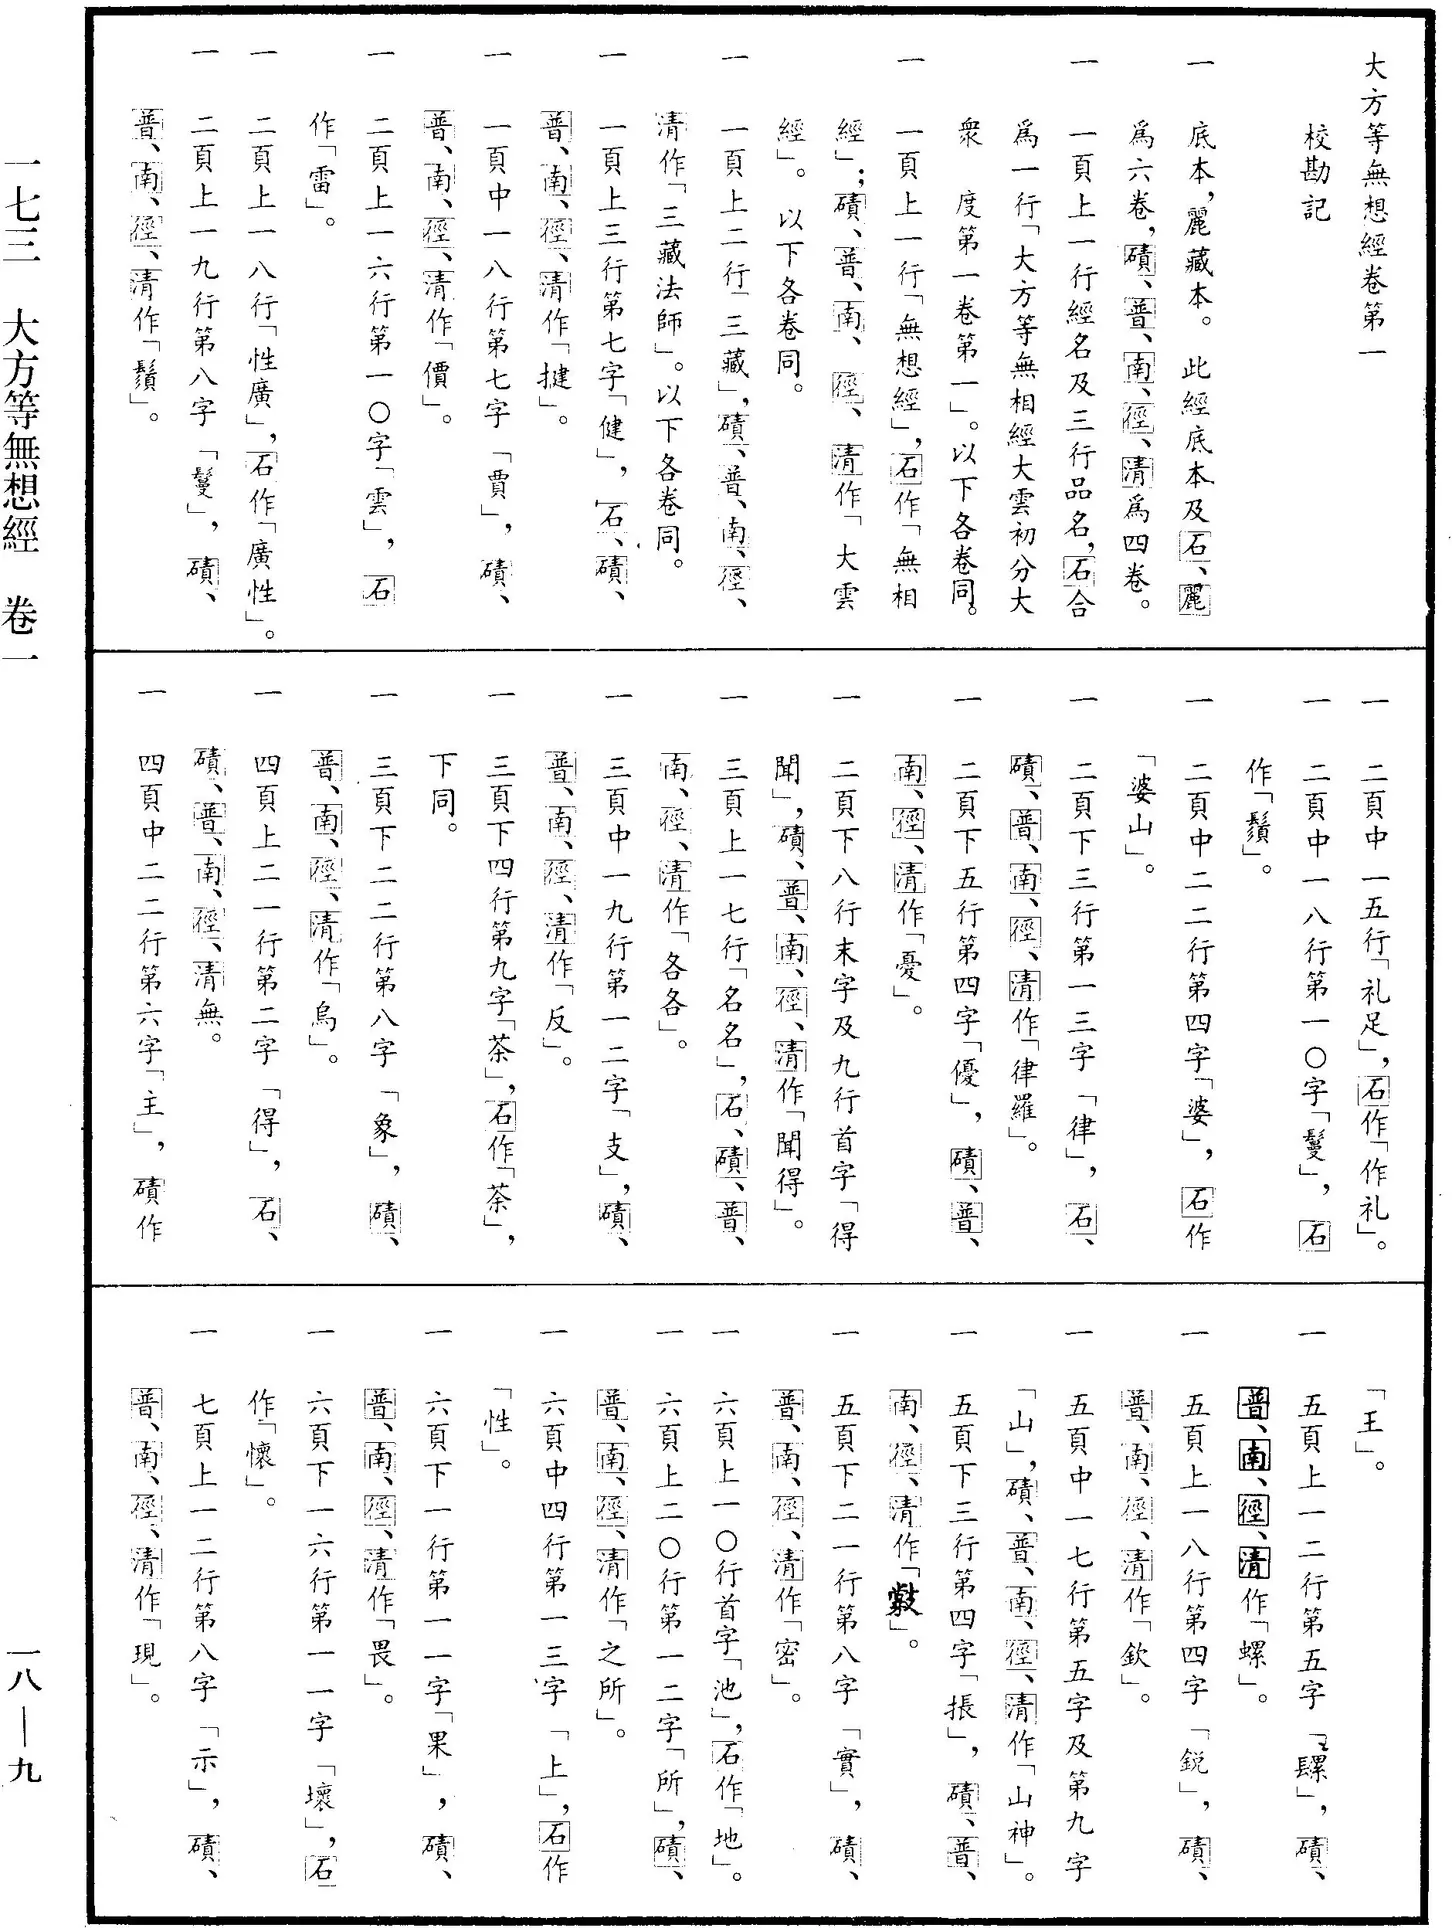 大方等無想經卷第一
校勘記
一　底本，麗藏本。此經底本及石、麗
爲六卷，磧、普、南、徑、清爲四卷。
一　一頁上一行經名及三行品名，石合
爲一行「大方等無相經大雲初分大
衆　度第一卷第一」。以下各卷同。
一　一頁上一行「無想經」，石作「無相
經」；磧、普、南、徑、清作「大雲
經」。以下各卷同。
一　一頁上二行「三藏」，磧、普、南、徑、
清作「三藏法師」。以下各卷同。
一　一頁上三行第七字「健」，石、磧、
普、南、徑、清作「揵」。
一　一頁中一八行第七字「賈」，磧、
普、南、徑、清作「價」。
一　二頁上一六行第一〇字「雲」，石
作「雷」。
一　二頁上一八行「性廣」，石作「廣性」。
一　二頁上一九行第八字「鬘」，磧、
普、南、徑、清作「鬚」。
一　二頁中一五行「礼足」，石作「作礼」。
一　二頁中一八行第一〇字「鬘」，石
作「鬚」。
一　二頁中二二行第四字「婆」，石作
「婆山」。
一　二頁下三行第一三字「律」，石、
磧、普、南、徑、清作「律羅」。
一　二頁下五行第四字「優」，磧、普、
南、徑、清作「憂」。
一　二頁下八行末字及九行首字「得
聞」，磧、普、南、徑、清作「聞得」。
一　三頁上一七行「名名」，石、磧、普、
南、徑、清作「各各」。
一　三頁中一九行第一二字「支」，磧、
普、南、徑、清作「反」。
一　三頁下四行第九字「茶」，石作「荼」，
下同。
一　三頁下二二行第八字「象」，磧、
普、南、徑、清作「烏」。
一　四頁上二一行第二字「得」，石、
磧、普、南、徑、清無。
一　四頁中二二行第六字「主」，磧作
「王」。
一　五頁上一二行第五字「」，磧、
普、南、徑、清作「螺」。
一　五頁上一八行第四字「鋭」，磧、
普、南、徑、清作「欽」。
一　五頁中一七行第五字及第九字
「山」，磧、普、南、徑、清作「山神」。
一　五頁下三行第四字「掁」，磧、普、
南、徑、清作「」。
一　五頁下二一行第八字「實」，磧、
普、南、徑、清作「密」。
一　六頁上一〇行首字「池」，石作「地」。
一　六頁上二〇行第一二字「所」，磧、
普、南、徑、清作「之所」。
一　六頁中四行第一三字「上」，石作
「性」。
一　六頁下一行第一一字「果」，磧、
普、南、徑、清作「畏」。
一　六頁下一六行第一一字「壞」，石
作「懷」。
一　七頁上一二行第八字「示」，磧、
普、南、徑、清作「現」。
一七三　大方等無想經　卷一
一八—九